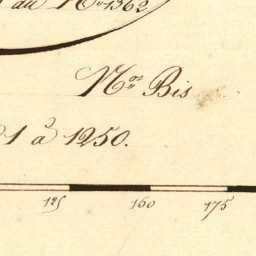 au N.º 1362
N.os Bis
1 à 1250.
125 160 175